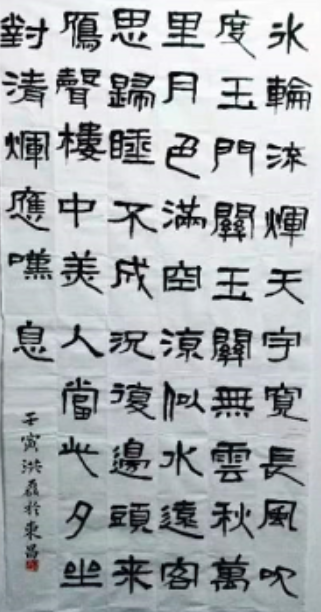 氷輪流煇天宇寬長風吹
度玉門關玉關無雲秋萬
里月色滿空涼似水遠客
思歸睡不成況復邊頭來
鴈聲樓中美人當此夕坐
對清煇應嘆息
壬寅洪磊於東昌